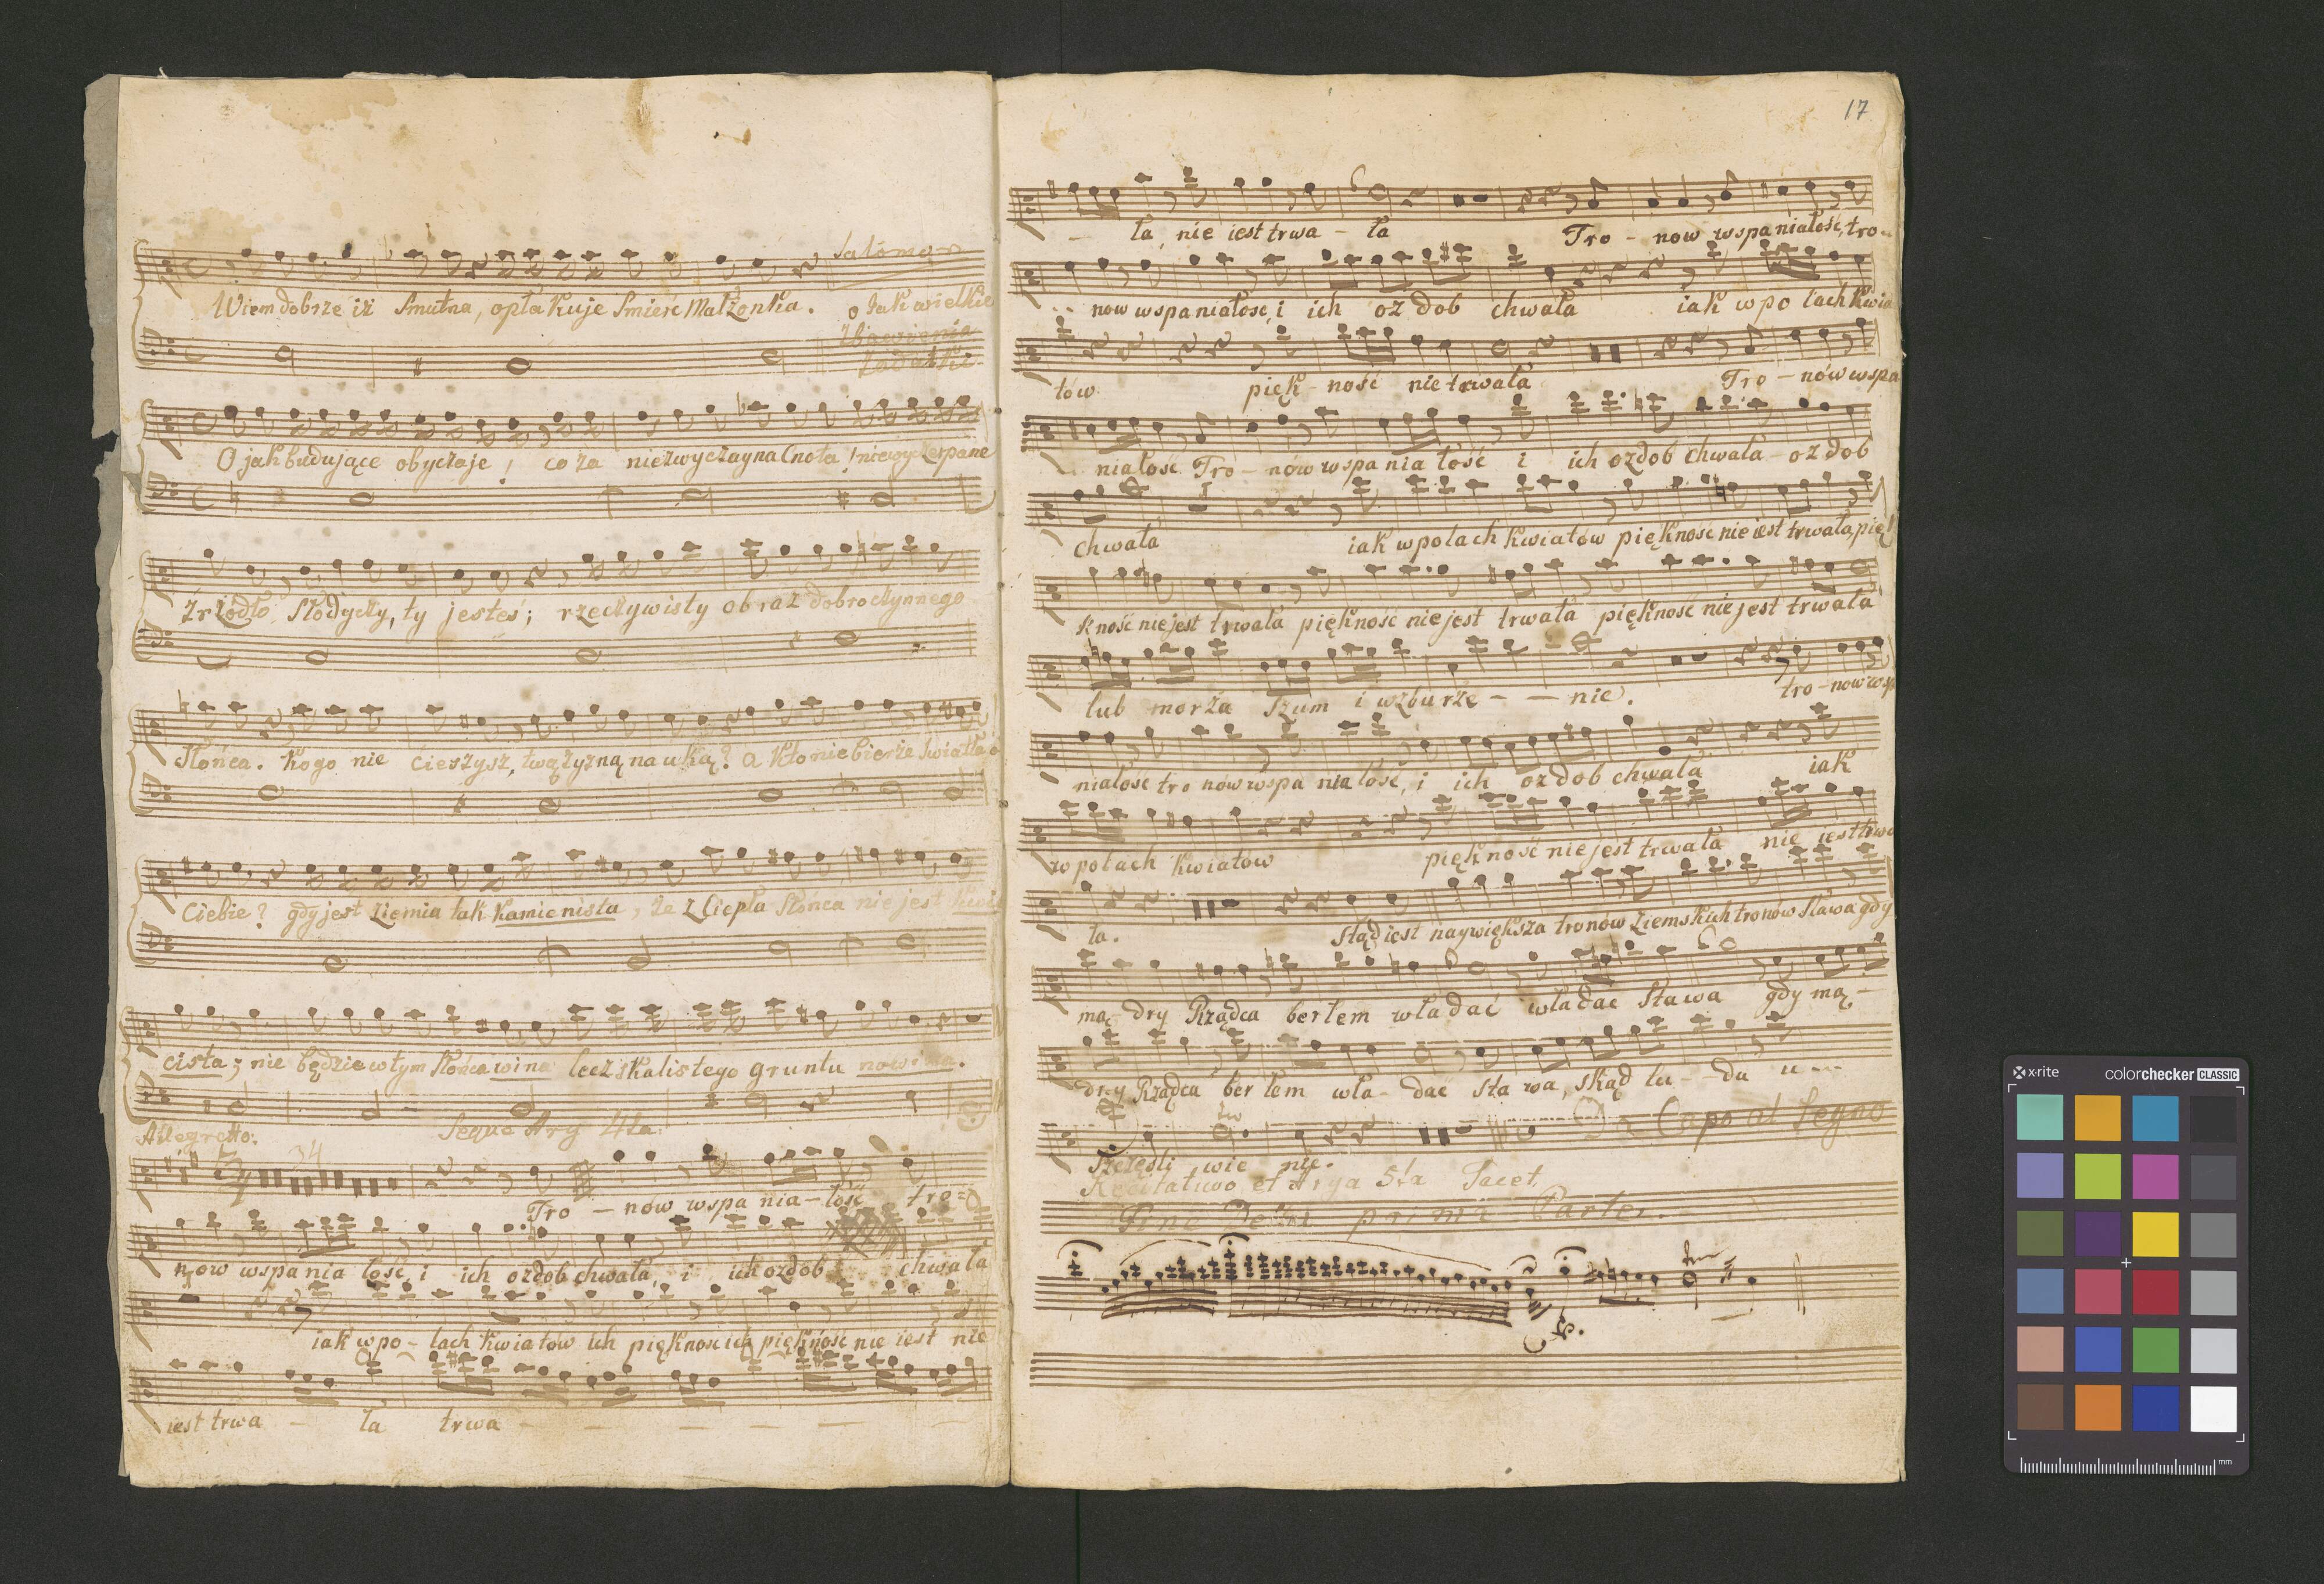 Salomo
Wiem dobrze iż Smutna, opłakuje Śmierć Małżonka. o Jak wielkie
Zbawienia
Zadatki
O jak budujące obyczaje! co za niezwyczayna Cnota! niewyczerpane
Zrzódło Słodyczy, ty jesteś; rzeczywisty obraz dobroczynnego
Słońca. kogo nie cieszysz, twą żyzną nauką? a kto nie bierze światła
Ciebie? gdy jest ziemia tak kamienista, że z Ciepła Słońca nie jest kwie
cista; nie będzie w tym Słońca wina lecz skalistego gruntu nowina.
Allegretto. Segue Ary 4ta
34
Tro - nów wspania - łość tro =
nów wspania łość, i ich ozdob chwała, i ich ozdob chwała
iak w po - lach kwiatów ich pięknosc ich piękność nie iest nie
iest trwa - ła trwa - - - - -
17
- ła, nie iest trwa - ła Tro - now wspaniałość, tro -
now wspaniałosc, i ich oz dob chwała iak w po lach kwia
tów pięk - ność nie trwała Tro - nów wspa
niałość Tro - nów wspania łość i ich ozdob chwała - oz dob
chwała iak w polach kwiatów piękność nie iest trwała, pię
kność nie jest trwała piękność nie jest trwała piękność nie jest trwała
lub morza szum i wzburze - - nie. tro - now wsp
niałosc tro now wspa niałość, i ich ozdob chwała iak
w polach kwiatów piękność nie jest trwała nie iest trwa
ła. Stąd iest naywiększa tronów ziemskich tronów Sława gdy
mą - dry Rządca berłem władać władac Sława gdy mą -
dry Rządca ber łem wła - dać sława, skąd lu - - du u - -
Capo al Segno
szczęśli wie nie.
Recitativo et Arya 5ta Tacet
Fine Della prima Parte.
x-rite colorchecker CLASSIC
mm